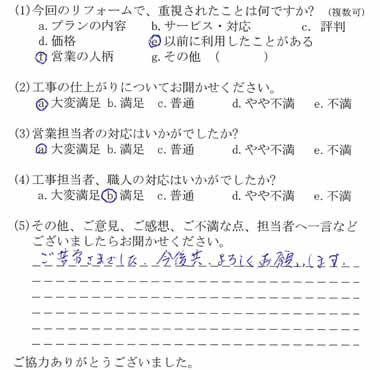 (1)今回のリフォームで、重視されたことは何ですか? (複数可)
a.プランの内容 b.サービス・対応 c. 評判
d.価格 e.以前に利用したことがある
f.営業の人柄 g.その他 ( )
(2)工事の仕上がりについてお聞かせください。
a.大変満足 b.満足 c.普通 d.やや不満 e.不満
(3)営業担当者の対応はいかがでしたか?
a.大変満足 b.満足 c.普通 d.やや不満 e.不満
(4)工事担当者、職人の対応はいかがでしたか?
a.大変満足 b.満足 c.普通 d.やや不満 e.不満
(5)その他、ご意見、ご感想、ご不満な点、担当者へ一言など
ございましたらお聞かせください。
ご苦労さまでした、今後共、よろしくお願いします。
ご協力ありがとうございました。